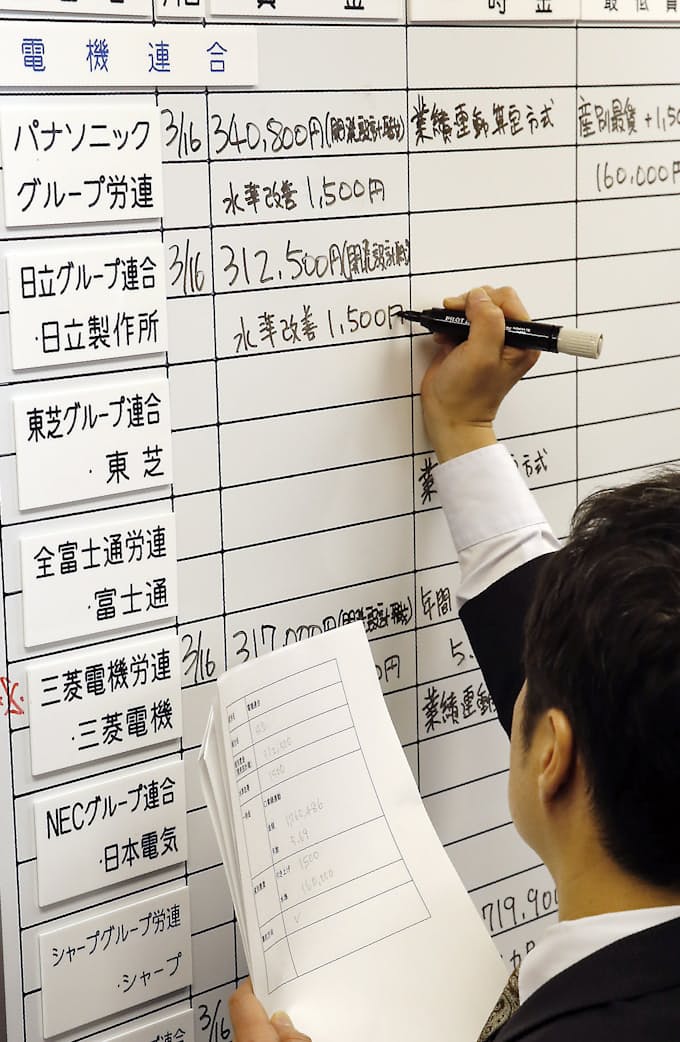 賃 金
時金
電機連合
パナソニック
グループ労連
3/16
340,800円(開発設計職)
業績連動算定方式
産別最賃+1,50
水準改善 1,500円
160,000円
日立グループ連合
・日立製作所
3/16
312,500円(開発設計職)
水準改善 1,500円
PILOT
東芝グループ連合
・東芝
業
方式
全富士通労連
・富士通
三菱電機労連
・三菱電機
3/16
317,000円(開発設計職)
円
年間
5.
業績連動
NECグループ連合
・日本電気
シャープグループ労連
・シャープ
719,900
3/16
312,500
1500
1,760,486
5.69
1500
160,000